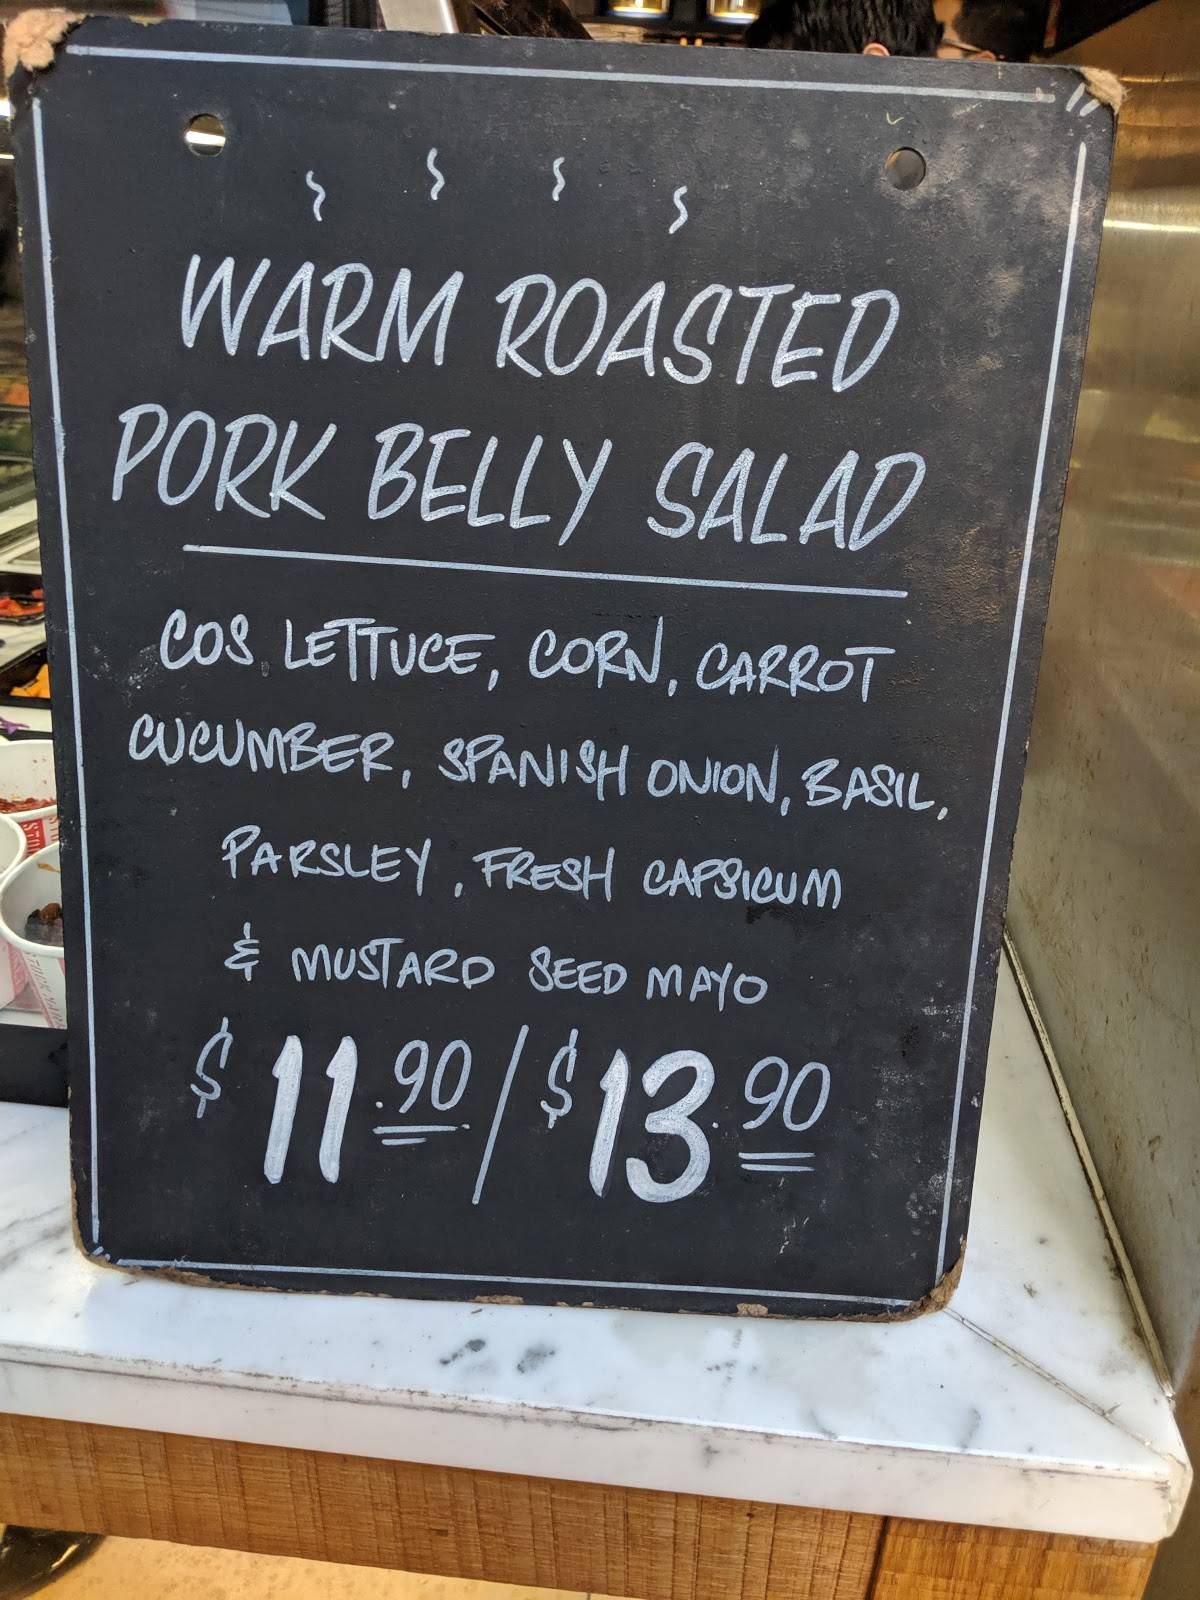 WARM ROASTED
PORK BELLY SALAD
COS LETTUCE, CORN, CARROT
CUCUMBER, SPANISH ONION, BASIL,
PARSLEY, FRESH CAPSICUM
& MUSTARD SEED MAYO
$11.90/$13.90